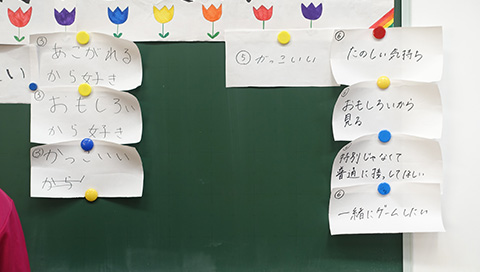 ③
あこがれる
から好き
③
おもしろい
から好き
かっこいい
から
い
⑤ かっこいい
⑥
たのしい気持ち
おもしろいから
見る
特別じゃなくて
普通に接してほしい
⑥
一緒にゲームしたい